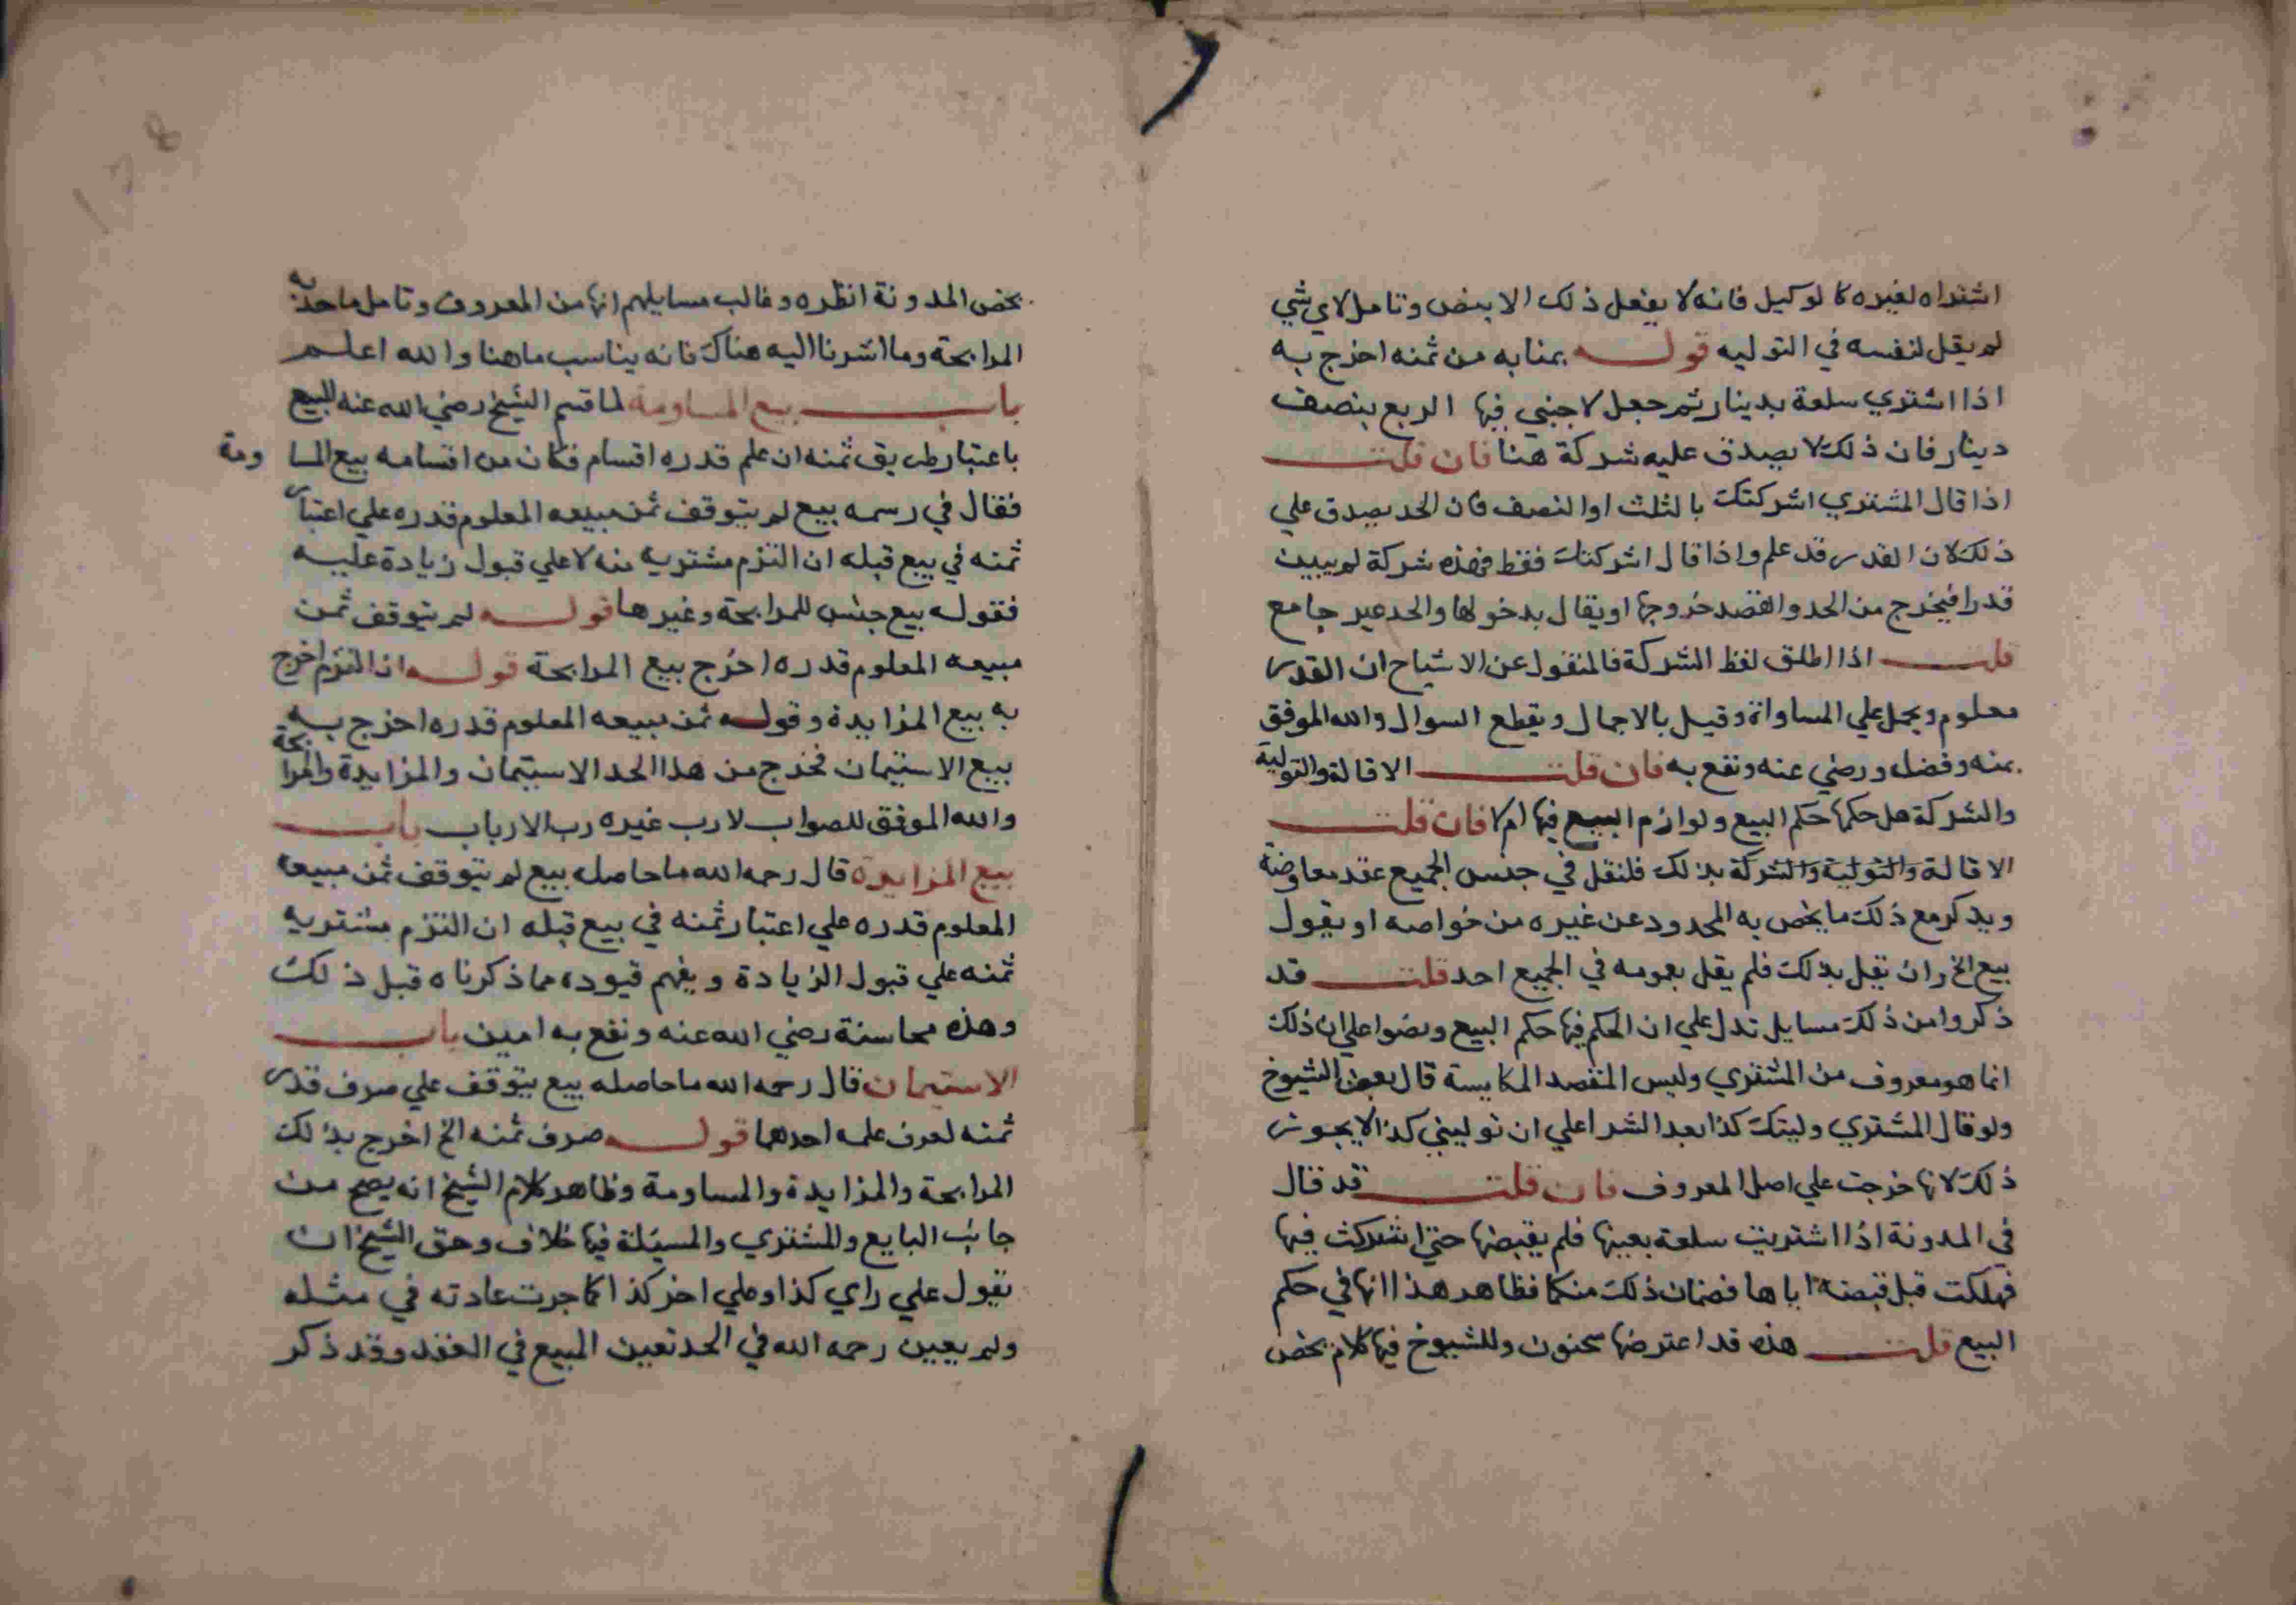 اشتراه لغيره كالوكيل فانه لا يفعل ذلك الا بنص وتامل لاي شي
لم يقل لنفسه في التوليه قوله بمنابه من ثمنه اخرج به
اذا اشتري سلعة بدينار ثم جعل لاجنبي فيها الربع بنصف
دينار فان ذلك لا يصدق عليه شركة هنا فان قلت
اذا قال المشتري اشركتك بالثلث او النصف فان الحد يصدق علي
ذلك لان القدر قد علم واذا قال اشركتك فقط فهذه شركة لم يبين
قدرا فيخرج من الحد والقصد خروجها او يقال بدخولها والحد غير جامع
قلت اذا اطلق لفظ الشركة فالمنقول عن الاشياح ان القدر
معلوم ويحمل علي المساواة وقيل بالاجمال ويقطع السوال والله الموفق
بمنه وفضله ورضي عنه ونفع به فان قلت الاقالة والتولية
والشركة هل حكمها حكم البيع ولوازم البيع فيها ام لا فان قلت
الاقالة والتولية والشركة بذلك فلنقل في جنس الجميع عقد معاوضة
ويذكر مع ذلك ما يخص به المحدود عن غيره من خواصه او يقول
بيع الخ وان تقبل بذلك فلم يقل بعومه في الجميع احد قلت قد
ذكروا من ذلك مسايل تدل علي ان الحكم فيها حكم البيع ونصوا علي ان ذلك
انما هو معروف من المشتري وليس المقصد المكايسة قال بعض الشيوخ
ولو قال المشتري وليتك كذا بعد الشرا علي ان توليني كذا لا يجوز
ذلك لانها خرجت علي اصل المعروف فان قلت قد قال
في المدونة اذا اشتريت سلعة بعينها فلم يقبضها حتي اشركت فيها
فهلكت قبل قبضه اياها فضمان ذلك منكما فظاهر هذا انها في حكم
البيع قلت هذه قد اعترضها سحنون وللشيوخ فيها كلام يخص
يخص المدونة انظره وغالب مسايلهم انها من المعروف وتامل ما حد به
المرابحة وما اشرنا اليه هناك فانه يناسب ما هنا والله اعلم
باب بيع المساومة لما قسم الشيخ رضي الله عنه البيع
باعتبار طريق ثمنه ان علم قدره اقسام فكان من اقسامه بيع المساومة
فقال في رسمه بيع لم يتوقف ثمن مبيعه المعلوم قدره علي اعتبار
ثمنه في بيع قبله ان التزم مشتريه ثمنه لا علي قبول زيادة عليه
فقوله بيع جنس للمرابحة وغيرها قوله لم يتوقف ثمن
مبيعه المعلوم قدره اخرج بيع المرابحة قوله ان التزم اخرج
به بيع المزايدة وقوله ثمن مبيعه المعلوم قدره اخرج به
بيع الاستيمان فخرج من هذا الحد الاستيمان والمزايدة والمرابحة
والله الموفق للصواب لا رب غيره رب الارباب باب
بيع المزايدة قال رحمه الله ما حاصله بيع لم يتوقف ثمن مبيعه
المعلوم قدره علي اعتبار ثمنه في بيع قبله ان التزم مشتريه
ثمنه علي قبول الزيادة ويفهم قيوده مما ذكرناه قبل ذلك
وهذه محاسنة رضي الله عنه ونفع به امين باب
الاستيمان قال رحمه الله ما حاصله بيع يتوقف علي صرف قدر
ثمنه لعرف علمه احدهما قوله صرف ثمنه الخ اخرج بذلك
المرابحة والمزايدة والمساومة وظاهر كلام الشيخ انه يصح من
جانب البايع والمشتري والمسيلة فيها خلاف وحق الشيخ ان
يقول علي راي كذا وعلي اخر كذا كما جرت عادته في مثله
ولم يعين رحمه الله في الحد تعيين المبيع في العقد وقد ذكر